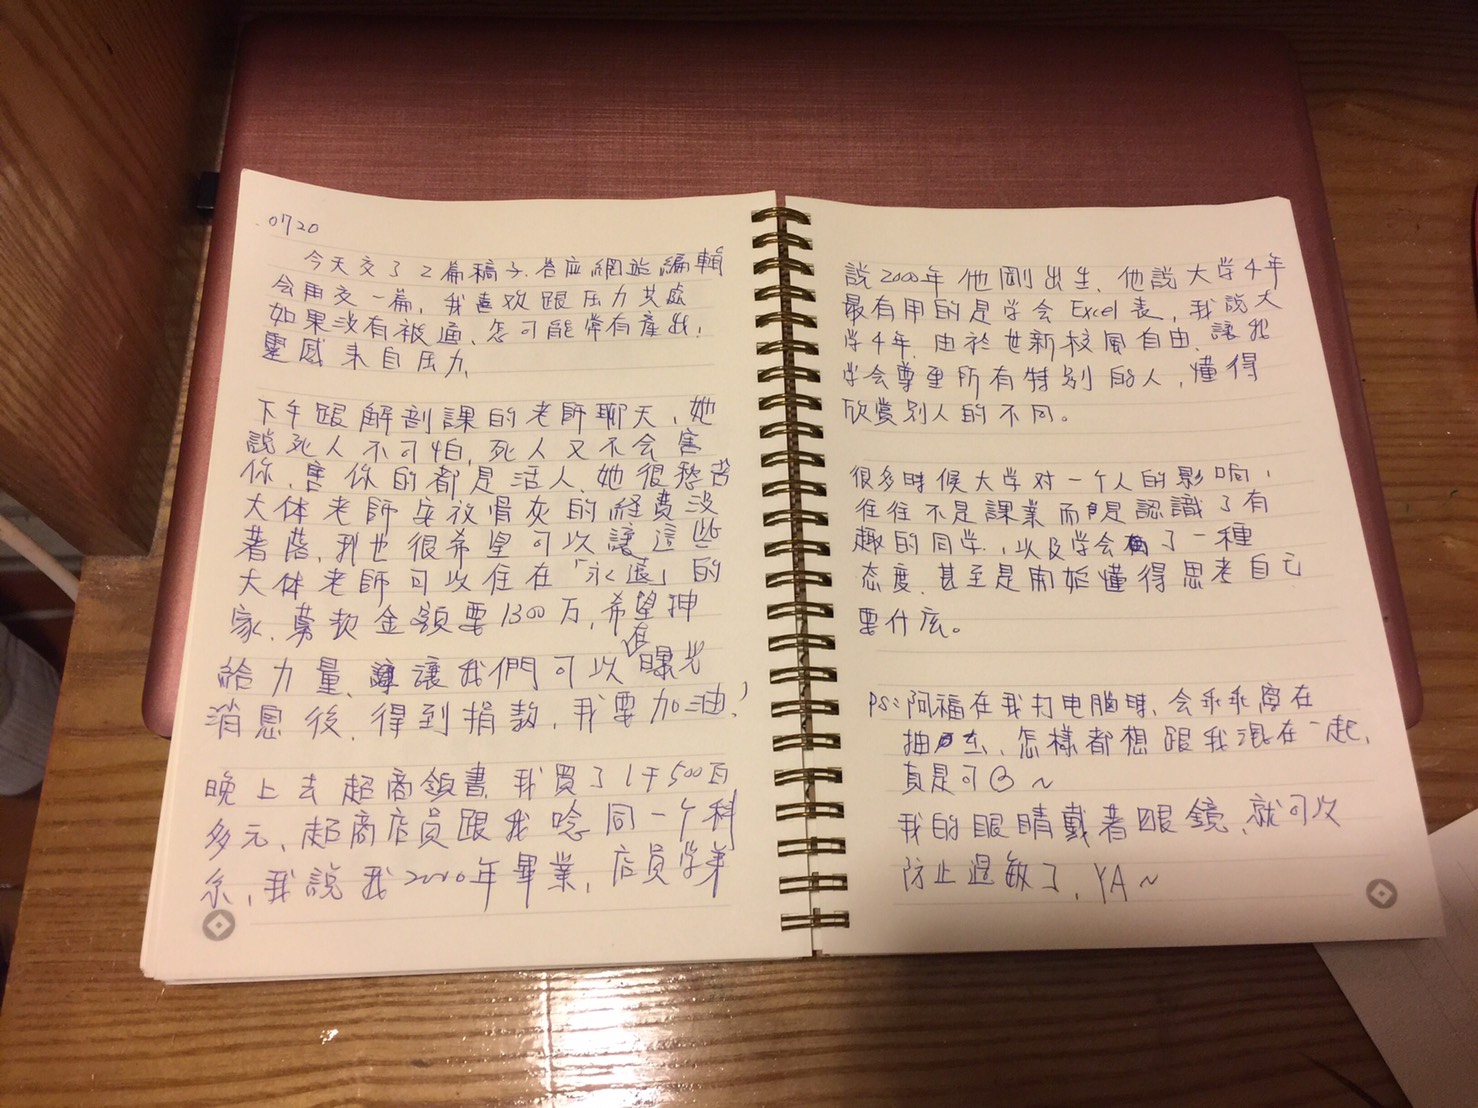 0720
今天交了2篇稿子.答应網站編輯
会再交一篇,我喜欢跟压力共處
如果沒有被逼、怎可能常有產出,
靈感来自压力、
下午跟解剖課的老師聊天,她
說死人不可怕,死人又不会害
你、害你的都是活人、她很愁苦
大体老師安放骨灰的經費沒
著落、我也很希望可以讓這些
大体老師可以住在「永遠」的
家、募款金額要1300万,希望神
給力量、讓我們可以在曝光
消息後、得到捐款、我要加油,
晚上去超商領書 我買了1千500百
多元、超商店員跟我唸同一个科
系、我說我2000年畢業,店員学弟
說2000年他剛出生、他說大学4年
最有用的是学会Excel表,我說大
学4年、由於世新校風自由、讓我
学会尊重所有特別的人,懂得
欣賞別人的不同。
很多時候大学对一个人的影响,
往往不是課業而是認識了有
趣的同学,以及学会了一種
态度、甚至是開始懂得思考自己
要什底。
PS:阿福在我打电腦時、会乖乖窩在
抽 、怎樣都想跟我混在一起、
真是可 ~
我的眼睛戴著眼鏡、就可以
防止過敏了、YA~